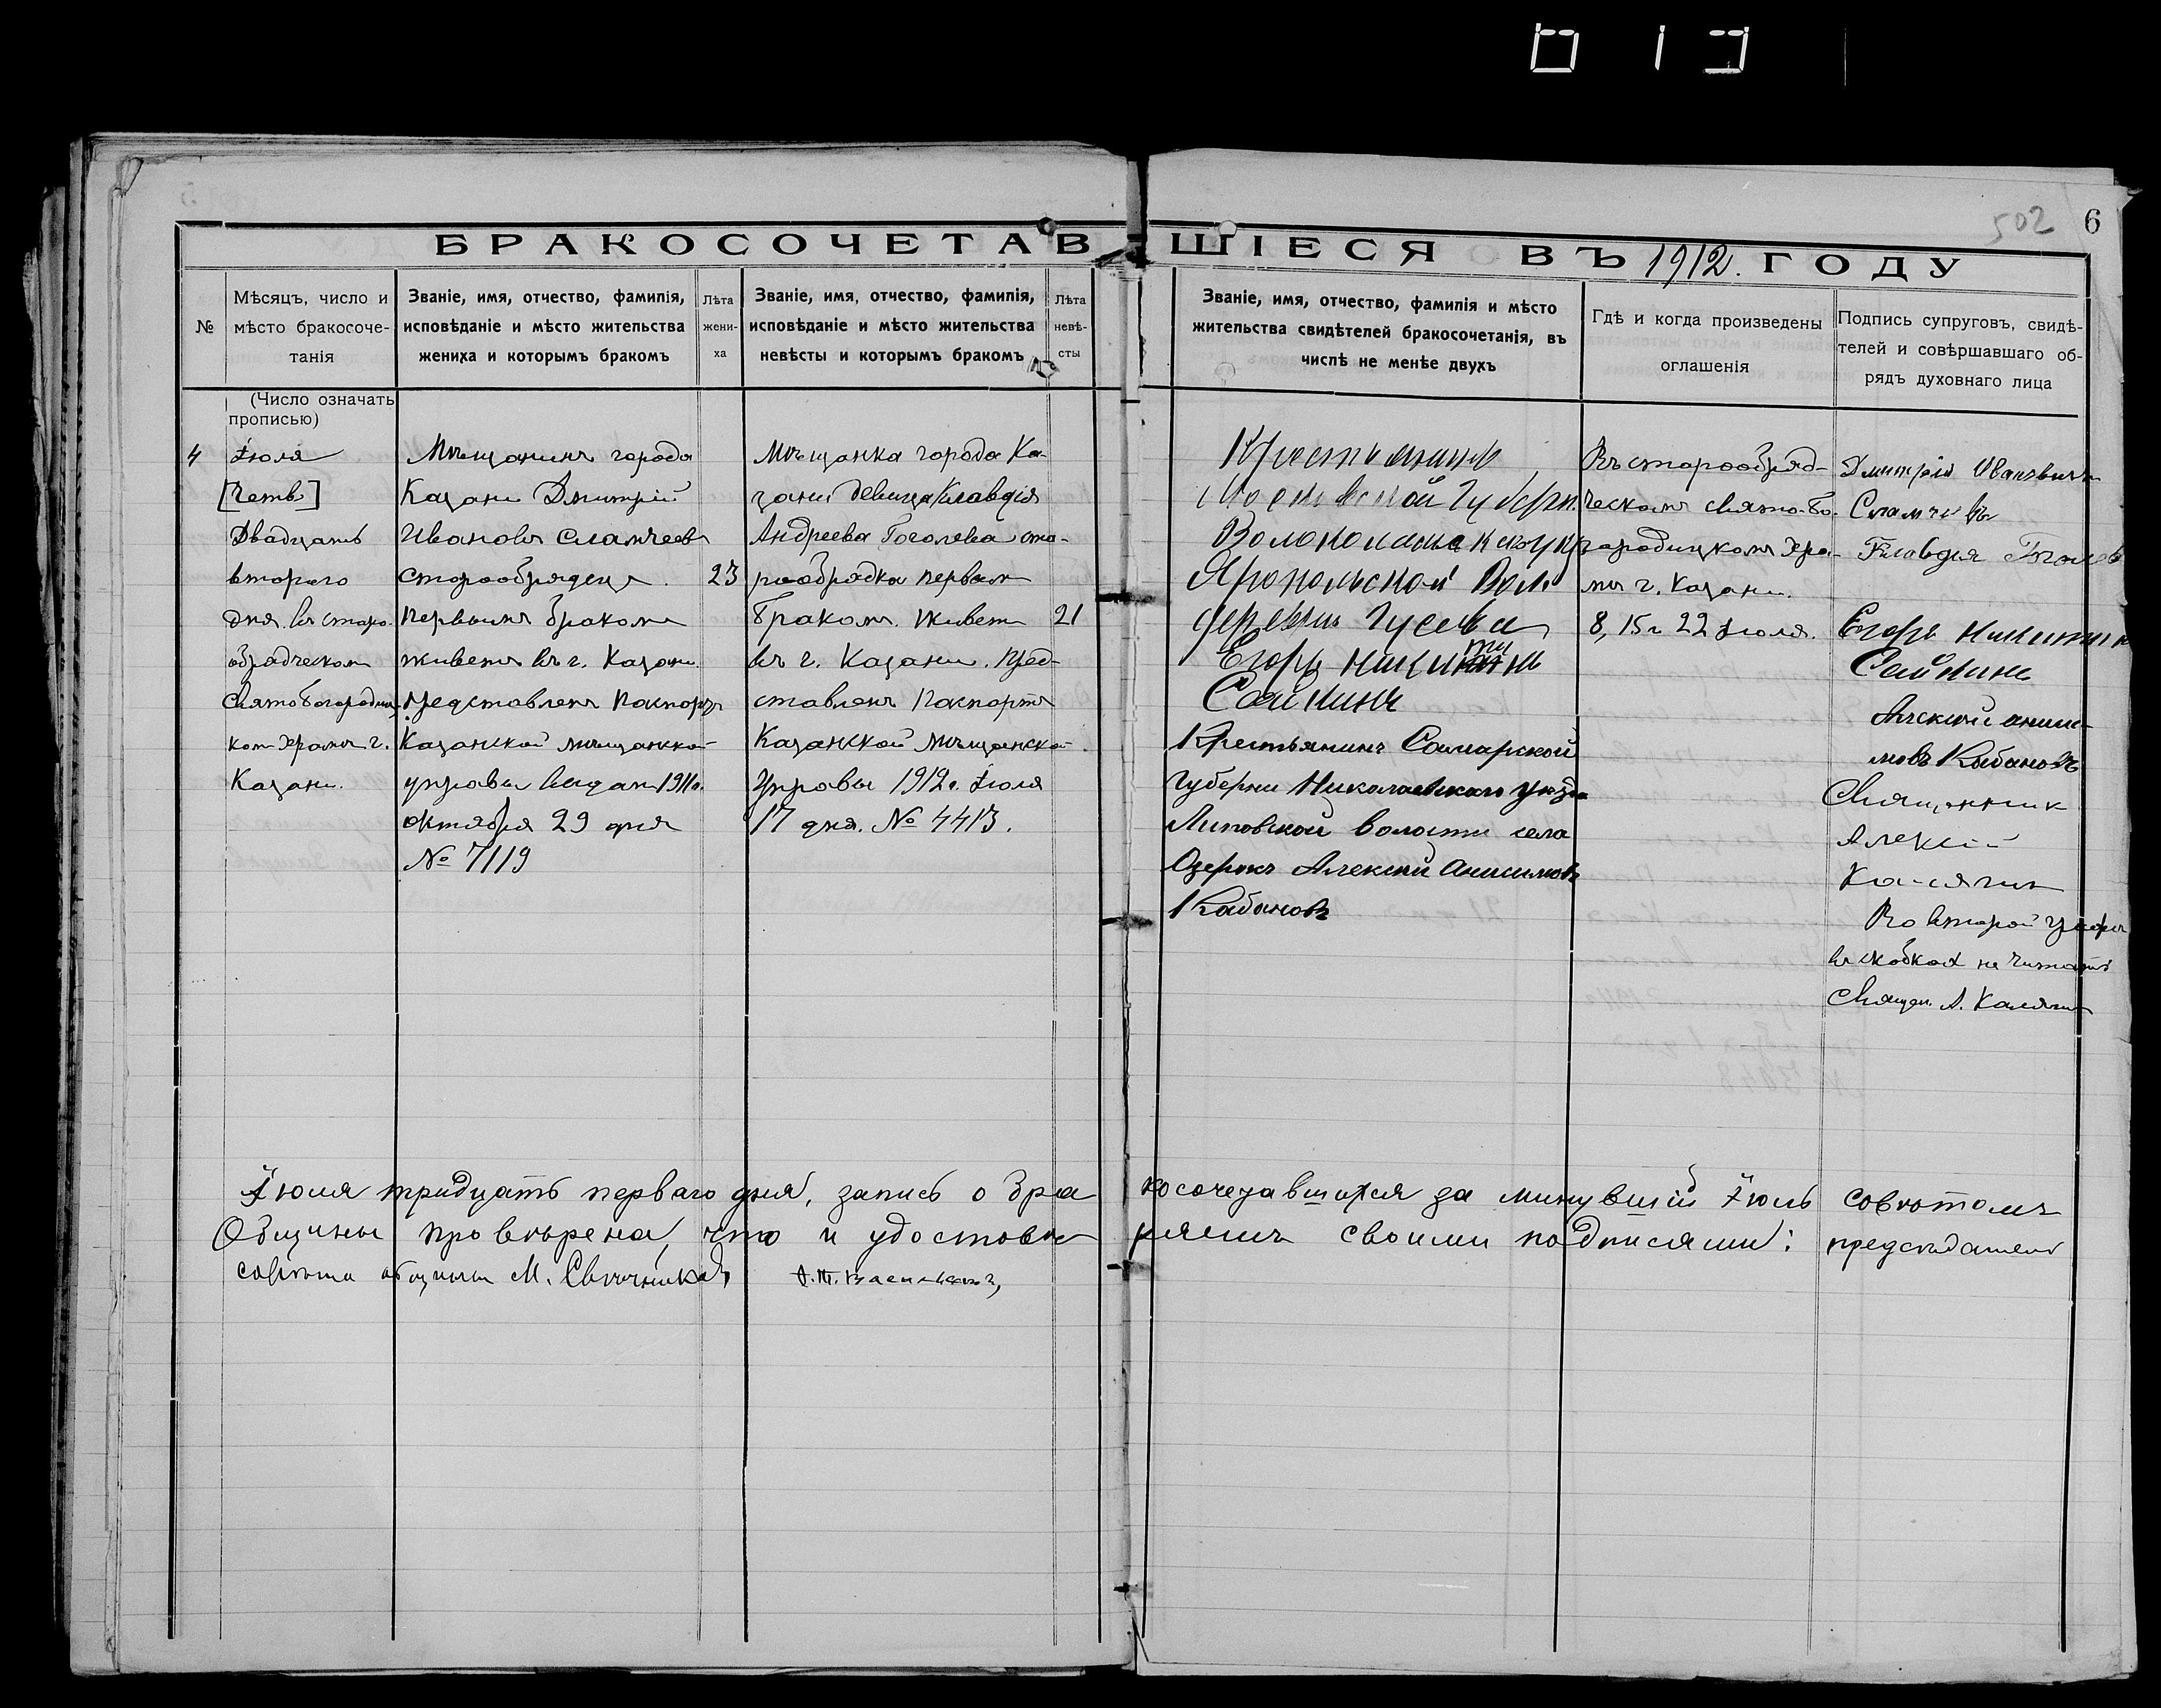 502 6
БРАКОСОЧЕТАВШІЕСЯ ВЪ 1912. ГОДУ
№
Мѣсяцъ, число и
мѣсто бракосоче-
танія
Званіе, имя, отчество, фамилія,
исповѣданіе и мѣсто жительства
жениха и которымъ бракомъ
Лѣта
жени-
ха
Званіе, имя, отчество, фамилія,
исповѣданіе и мѣсто жительства
невѣсты и которымъ бракомъ
Лѣта
невѣ-
сты
Званіе, имя, отчество, фамилія и мѣсто
жительства свидѣтелей бракосочетанія, въ
числѣ не менѣе двухъ
Гдѣ и когда произведены
оглашенія
Подпись супруговъ, свидѣ-
телей и совѣршавшаго об-
рядъ духовнаго лица
(Число означать
прописью)
4
Іюля
[Четв]
Двадцать
второго
дня. въ старо-
обрадческом
Святобогородиц-
ком храмѣ г.
Казани.
Мѣщанинъ города
Казани Дмитрій
Ивановъ Сламчеев
старообрядецъ.
первымъ бракомъ
живетъ въ г. Казани.
представленъ Паспортъ
Казанской мѣщанской
управы выдан 1911 г.
октября 29 дня
№ 7119
23
Мѣщанка города Ка-
зани девица Клавдія
Андреева Гоголева ста-
рообрядка первым
браком. Живет
въ г. Казани. пред-
ставленъ Паспортъ
Казанской Мѣщанской
Управы 1912 г. Іюля
17 дня. № 4413.
21
Крестьянинъ
Московской Губерн.
Волоколамскаго у
Яропольской Вол.
деревни Гусева
Егоръ Никитинъ
Сайкинъ
Крестьянинъ Самарской
Губерни Николаевскаго уезда
Липовской волости села
Озерокъ Алексий Анисимовъ
Кабановъ
Въ старообряд-
ческомъ Свято-Бо-
городицкомъ Хра-
мѣ г. Казани.
8, 15 и 22 Іюля.
Дмитрій Ивановичъ
Сламчевъ
Клавдія Гоголев
Егоръ Никитинъ
Сайкинъ
Алексий аниси-
мовъ Кабановъ
Священник
Алексій
Калягин
Во второй графе
въ скобках не читать
Священ. А. Калягин
Іюля тридцать перваго дня, запись о бракосочетавшихся за минувший Іюль совѣтомъ
Общины провѣрена, что и удостовѣряемъ своими подписями: председатель
совѣта общины М. Свѣчниковъ